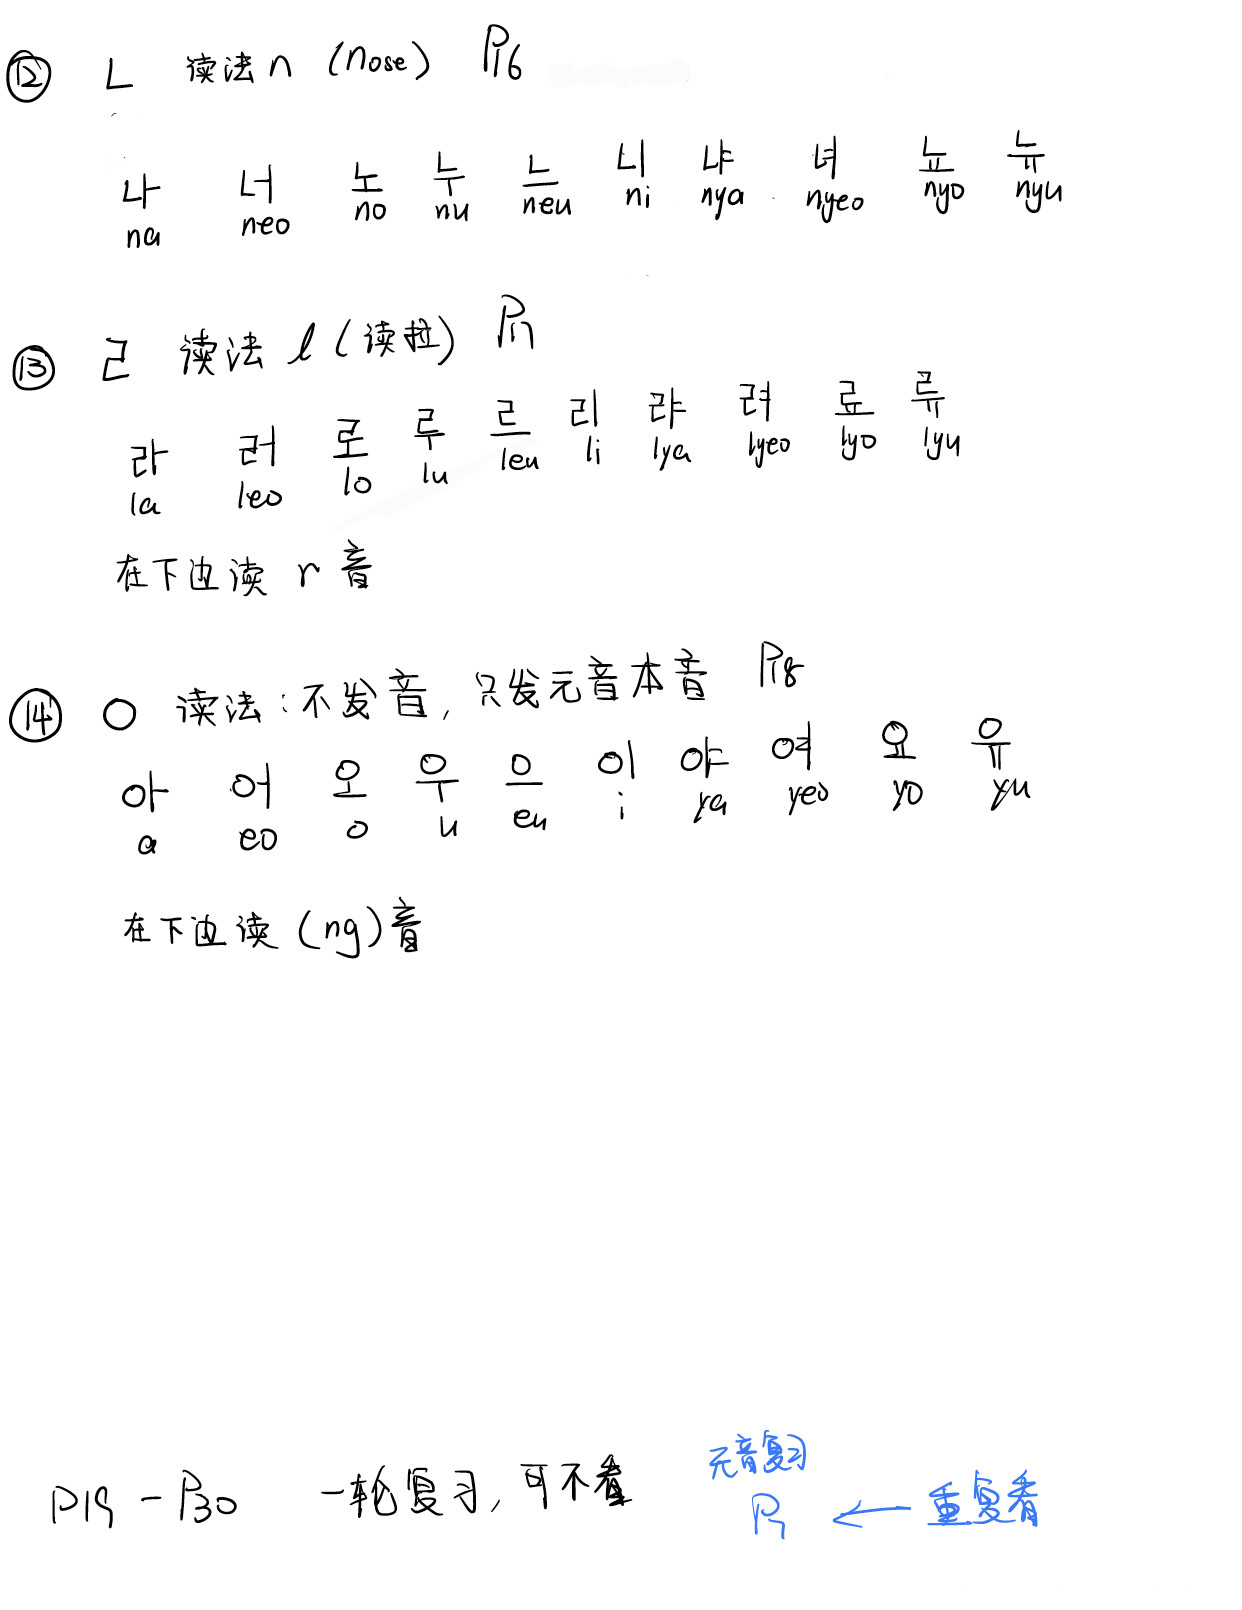 ⑫ ㄴ 读法 n (nose) P16
나 너 노 누 느 니 냐 녀 뇨 뉴
na neo no nu neu ni nya nyeo nyo nyu
⑬ ㄹ 读法 l (读拉) P17
라 러 로 루 르 리 랴 려 료 류
la leo lo lu leu li lya lyeo lyo lyu
在下边读 r 音
⑭ ㅇ 读法:不发音,只发元音本音 P18
아 어 오 우 으 이 야 여 요 유
a eo o u eu i ya yeo yo yu
在下边读 (ng) 音
元音复习
P19 - P30 一轮复习,可不看
P7 ← 重复看